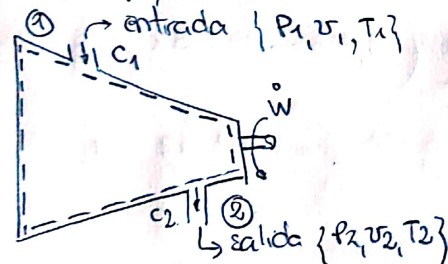 ① entrada { P1, v1, T1}
C1
Ẇ
C2 ②
salida {P2, v2, T2}